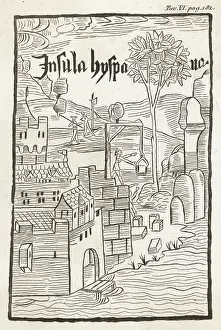 Tav. VI. pag. 182.
Insula hyspa na.